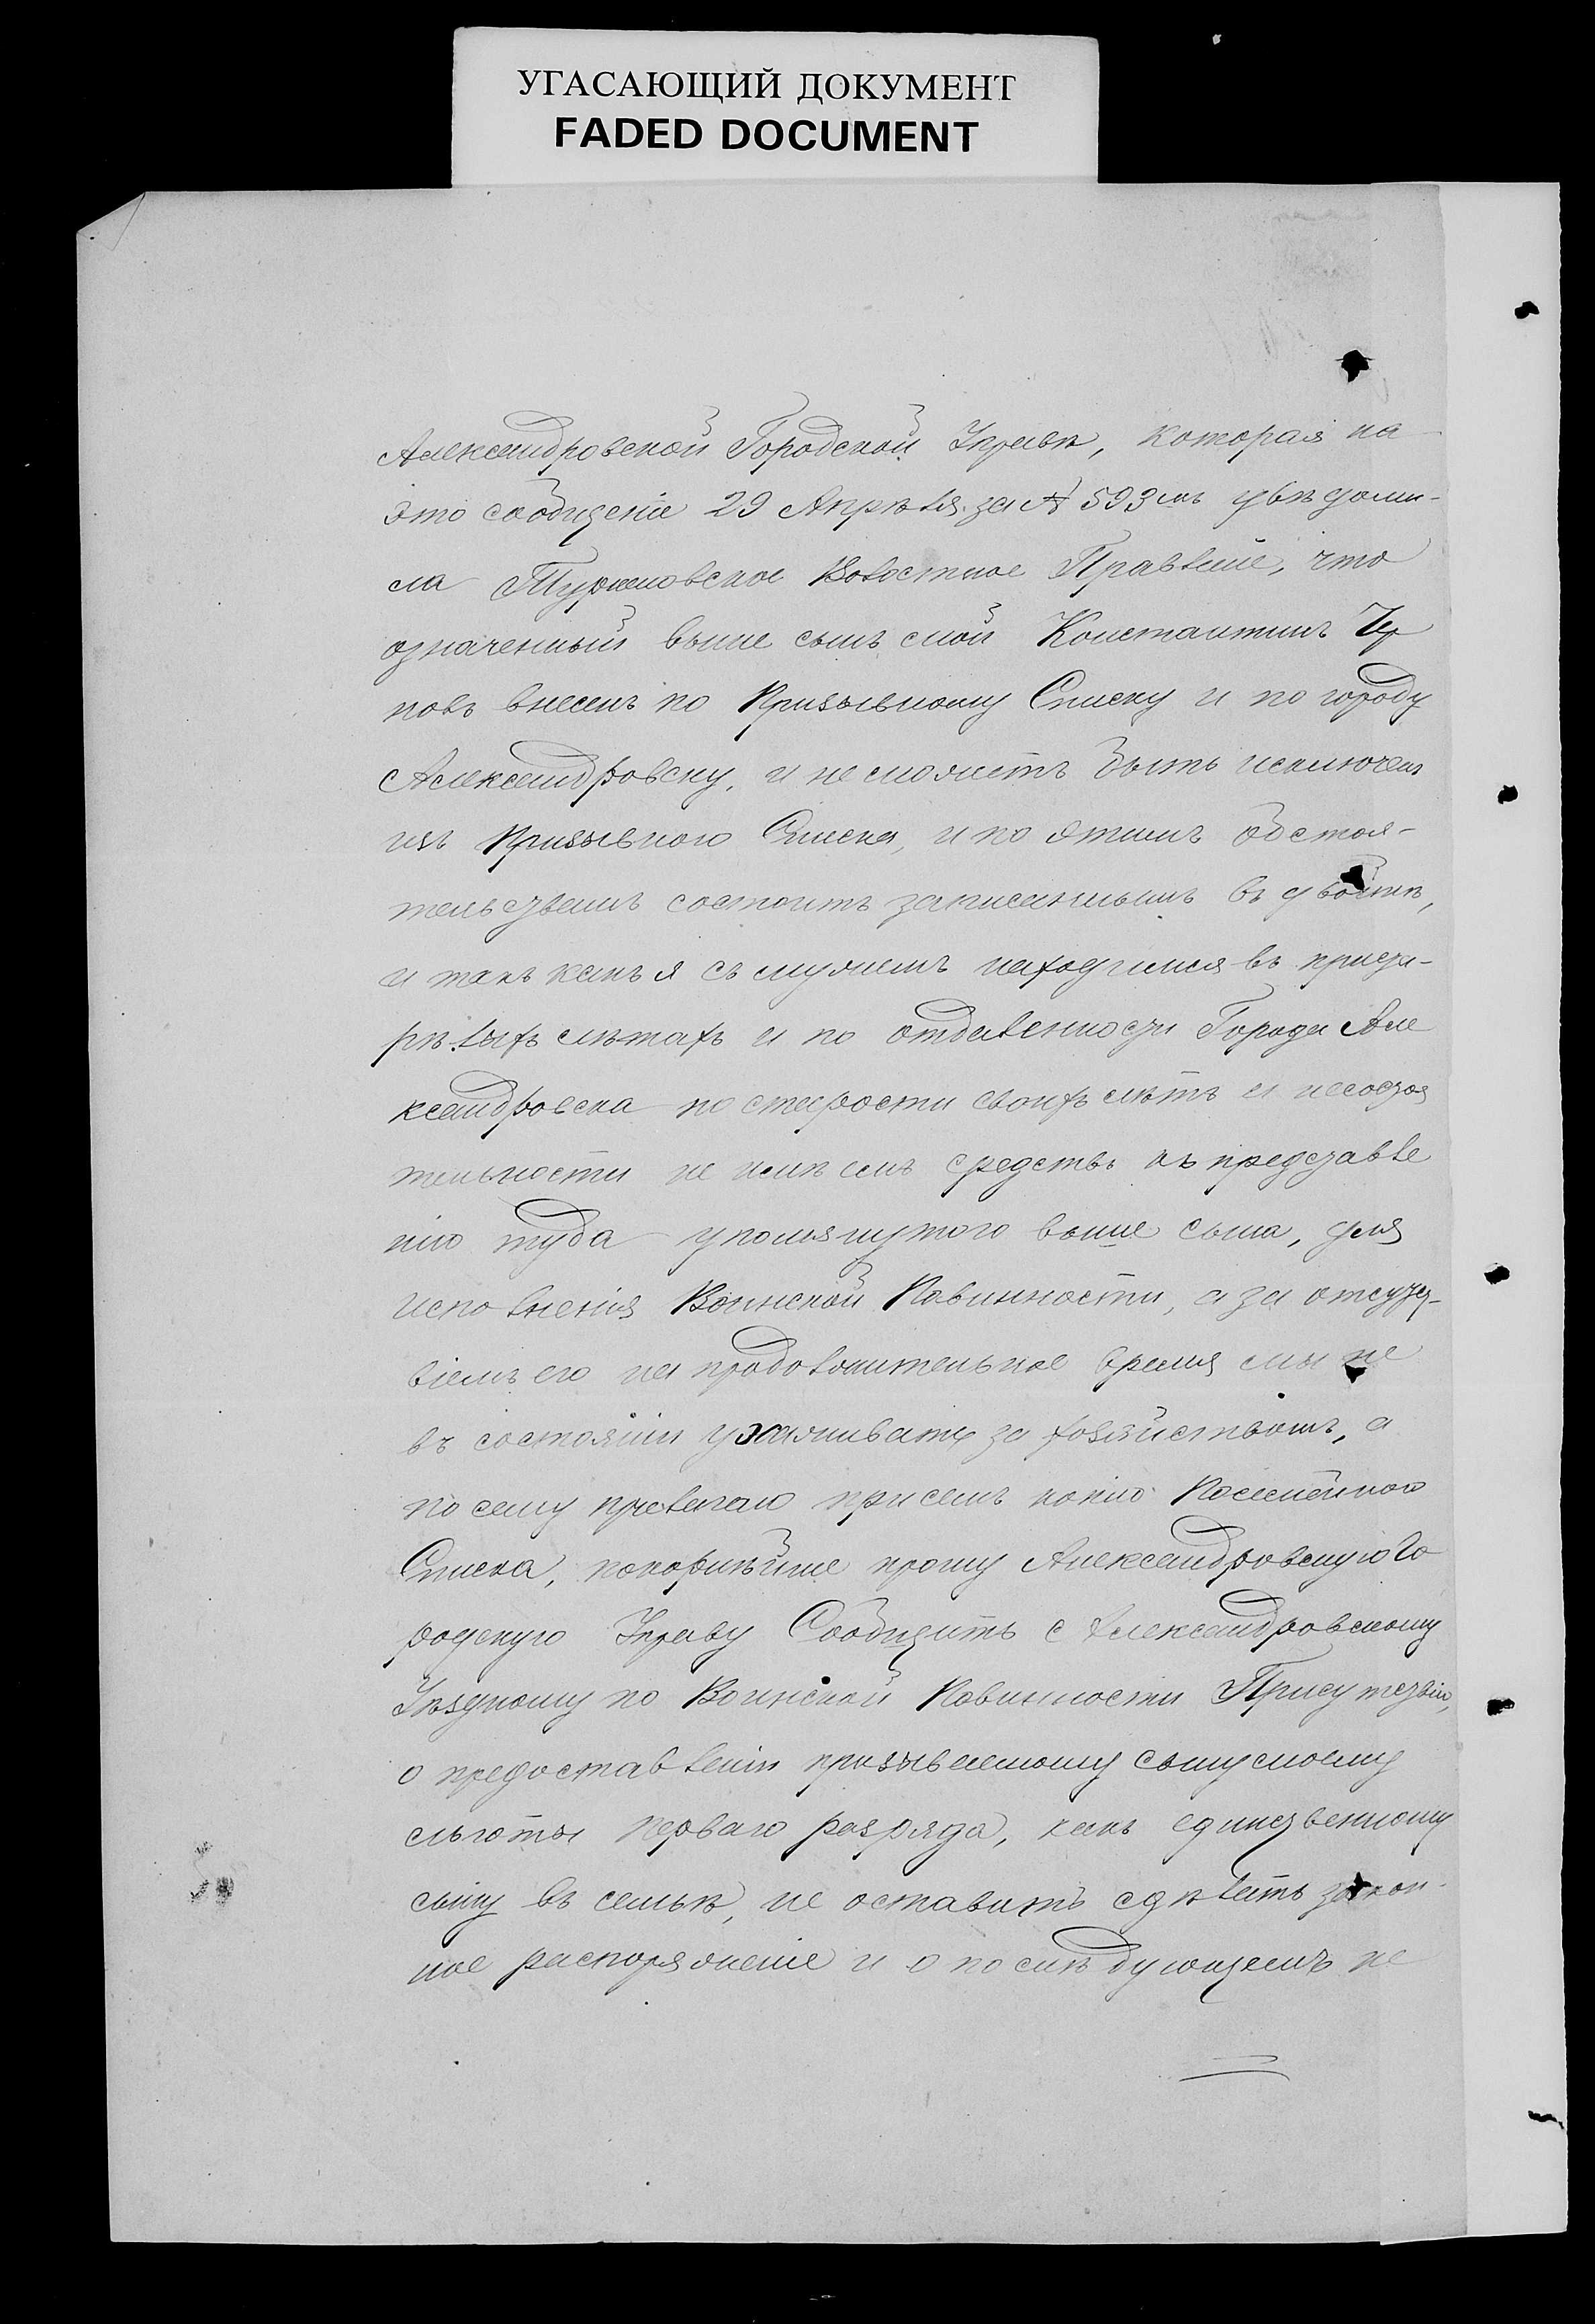 УГАСАЮЩИЙ ДОКУМЕНТ
FADED DOCUMENT
Александровской Городской Управѣ, которая на
это сообщеніе 29 Апрѣля за № 593мъ увѣдоми-
ла Волостное Правленіе, что
означенный выше сынъ мой Константинъ
новъ внесенъ по Призывному Списку и по городу
Александровску, и не можетъ быть исключенъ
изъ Призывного Списка, и по этимъ обстоя-
тельствамъ состоитъ записаннымъ въ двойнѣ,
и такъ какъ я съ мужемъ находимся въ приста-
рѣлыхъ лѣтахъ и по отдаленности Города Але
ксандровска по старости своихъ лѣтъ и несостоя
тельности не имѣемъ средствъ къ представле
нію туда упомянутого выше сына, для
исполненія Воинской Повинности, а за отсутст-
віемъ его на продолжительное время мы не
въ состояніи ухаживать за хозяйствомъ, а
по сему прилагаю при семъ копію Посемейного
Списка, покорнѣйше прошу Александровскую Го
родскую Управу Сообщить Александровскому
Уѣздному по Воинской Повинности Присутствію,
о предоставленіи призываемому сыну моему
льготы перваго разряда, какъ единственному
сыну въ семьѣ, не оставить сдѣлать закон-
ное распоряженіе и о послѣдующемъ не